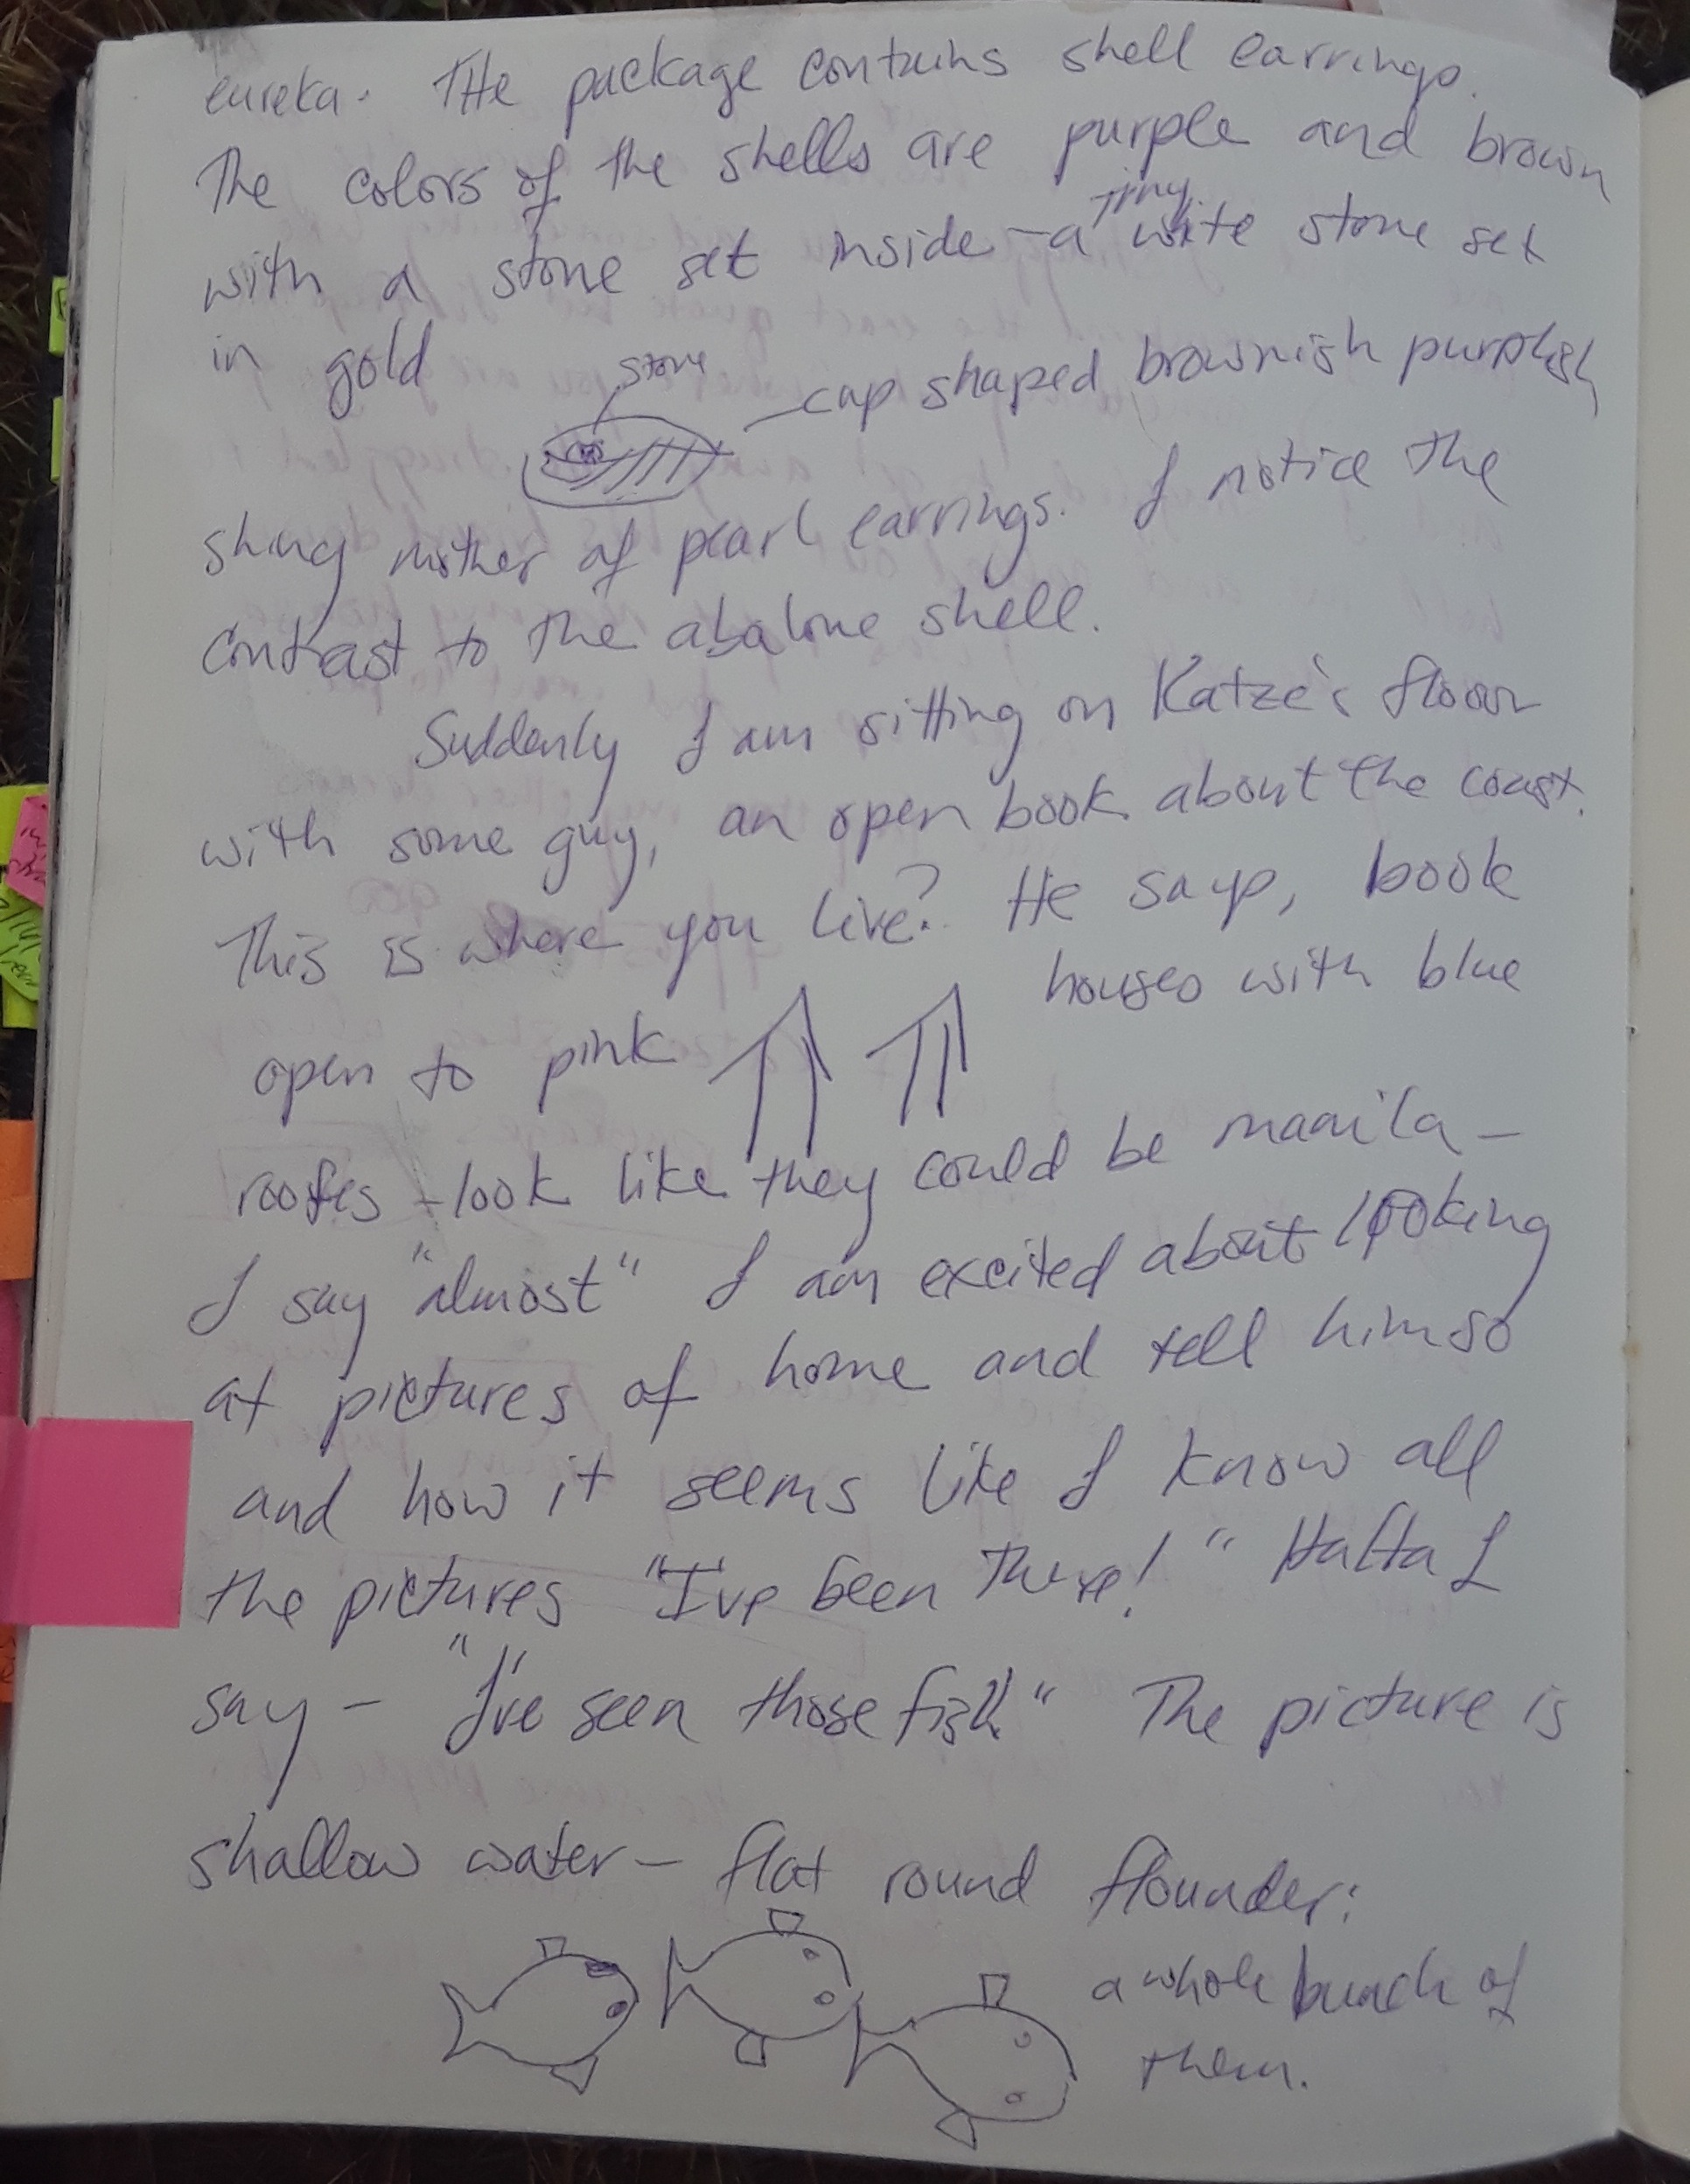 eureka. THe package contains shell earrings.
The colors of the shells are purple and brown
with a stone set inside - a tiny wite stone set
in gold
stone
cup shaped brownish purplish
shiny mother of pearl earrings. I notice the
contrast to the abalone shell.
Suddenly I am sitting on Katze's floor
with some guy, an open book about the coast.
This is where you live? He says, book
open to pink houses with blue
roofs - look like they could be manila -
I say "almost" I am excited about looking
at pictures of home and tell him so
and how it seems like I know all
the pictures "I've been There!" Hafta I
say - "I've seen those fish" The picture is
shallow water - flat round flounder:
a whole bunch of
them.